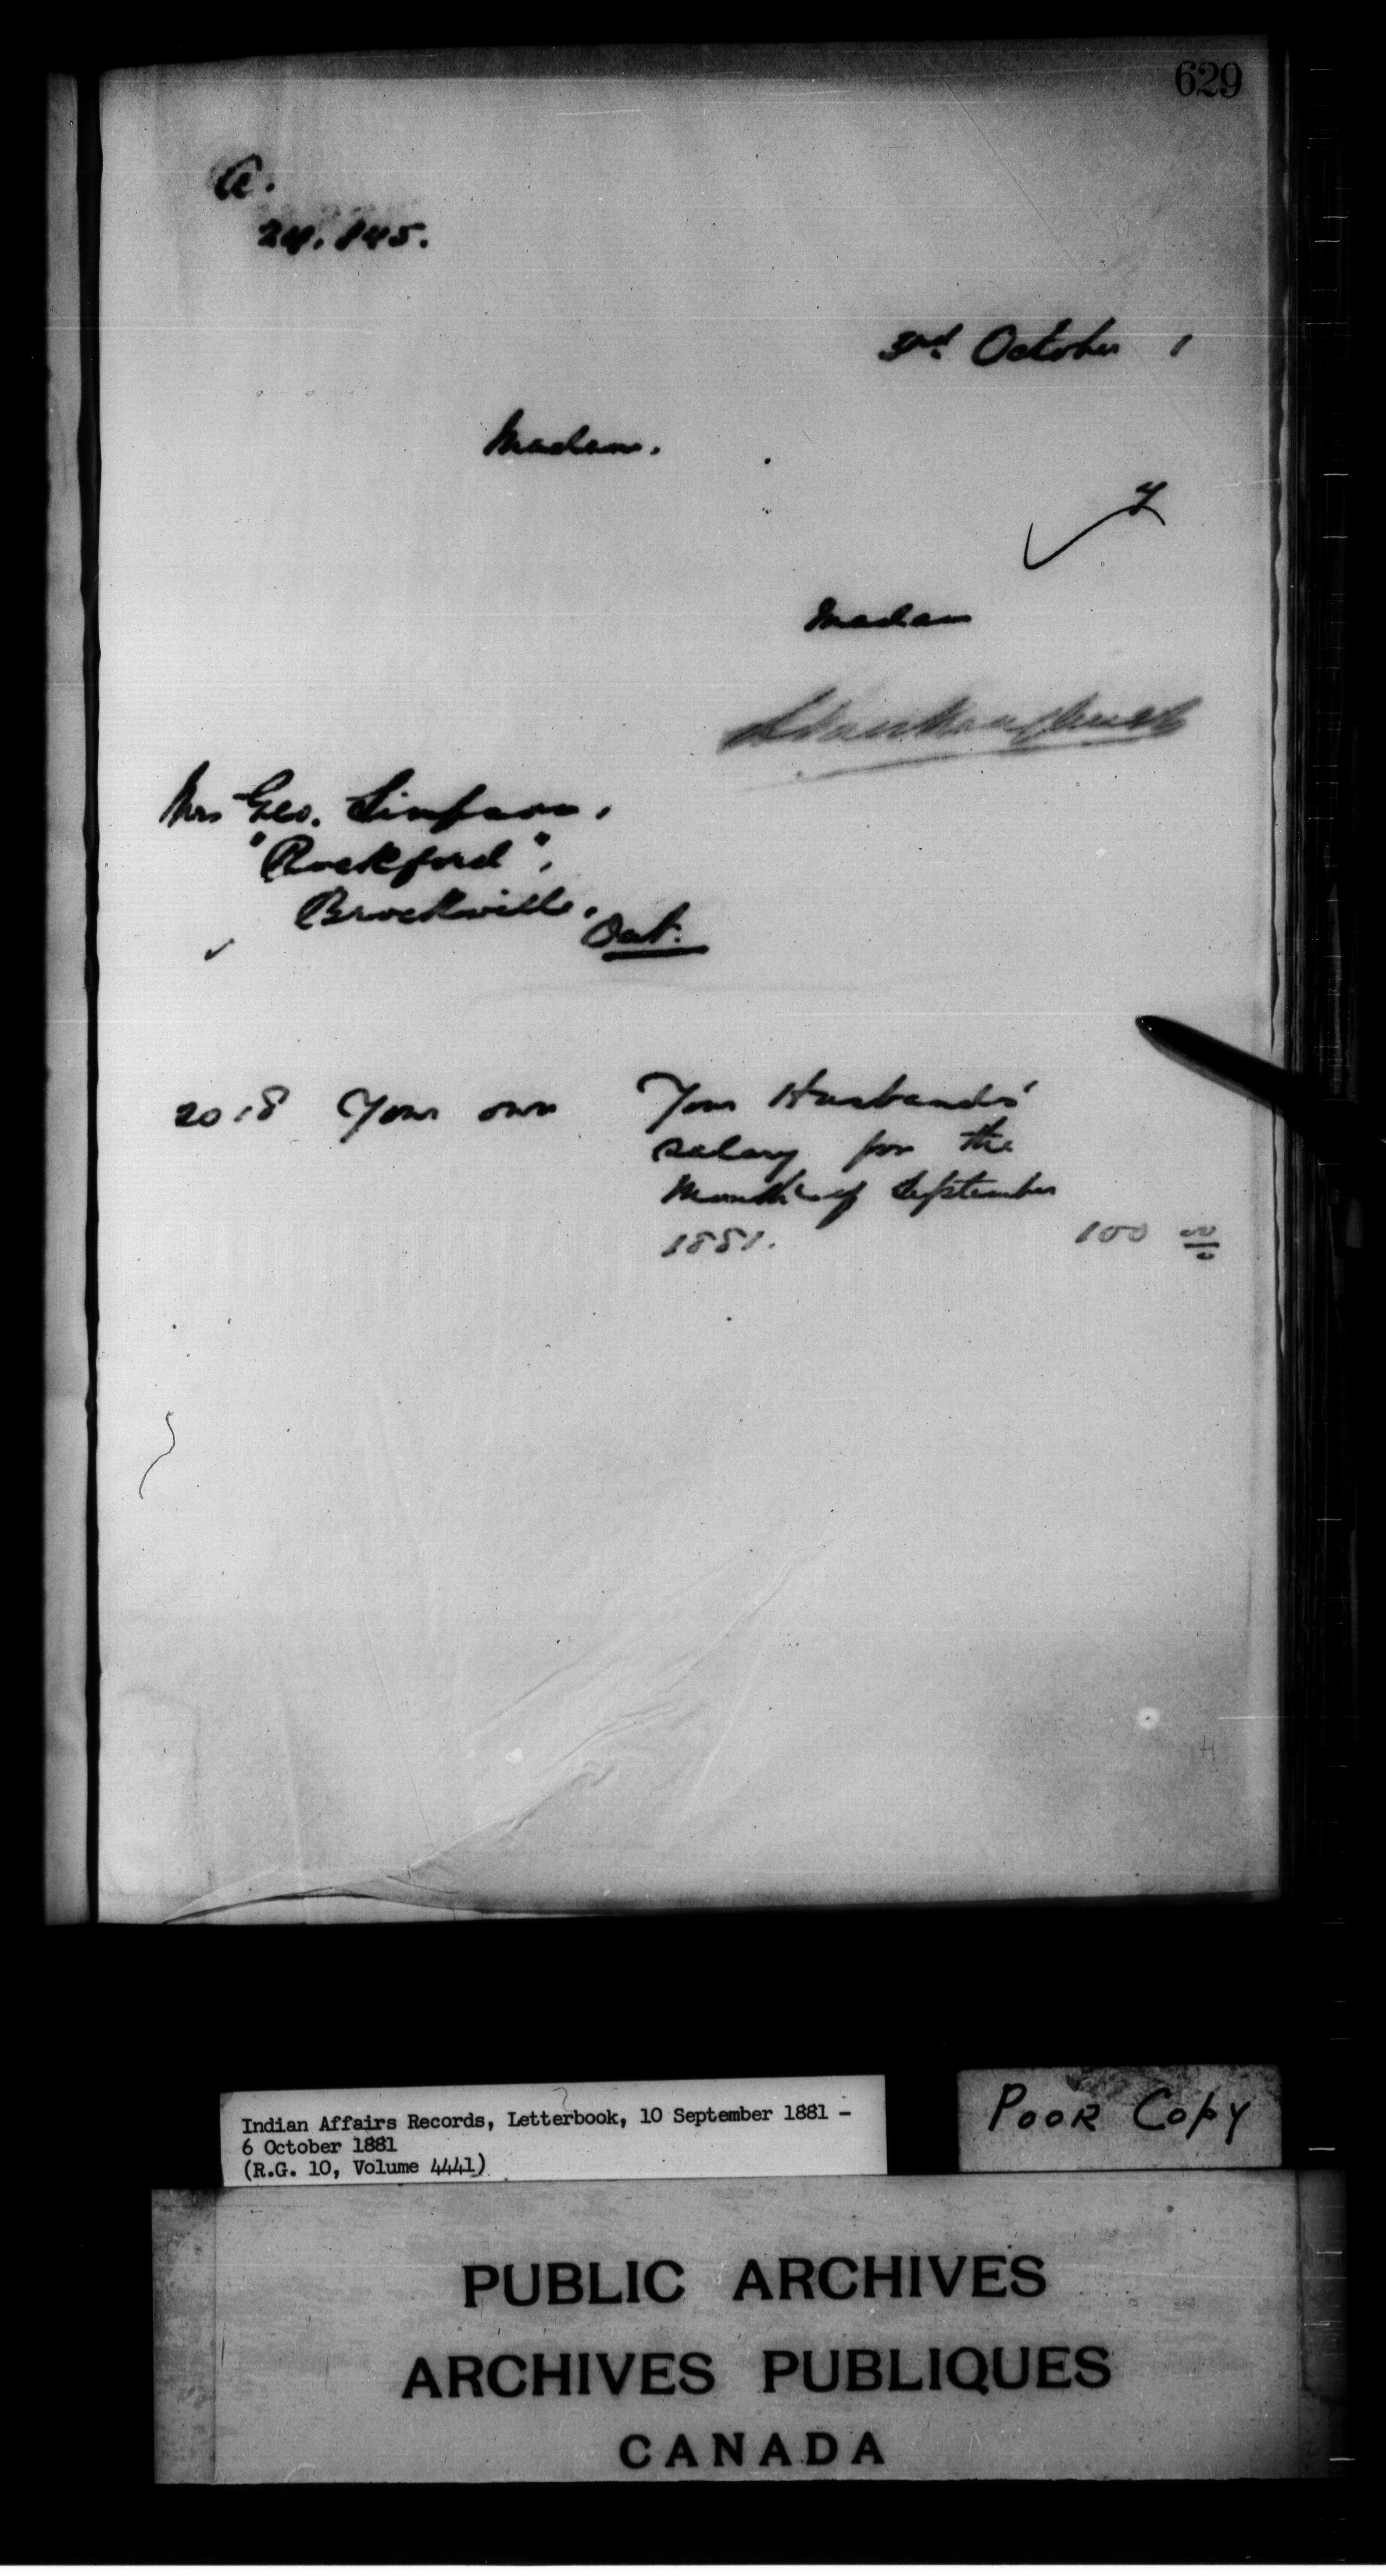 629
A.
24,845.
3rd October 1
Madam.
Madam
L Vankoughnet
Mrs Geo. Simpson,
"Rockford",
Brockville,
Ont.
2018 Your own Your Husbands'
salary for the
Month of September
1881. 100 00/0
Indian Affairs Records, Letterbook, 10 September 1881 -
6 October 1881
(R.G. 10, Volume 4441)
POOR COPY
PUBLIC ARCHIVES
ARCHIVES PUBLIQUES
CANADA